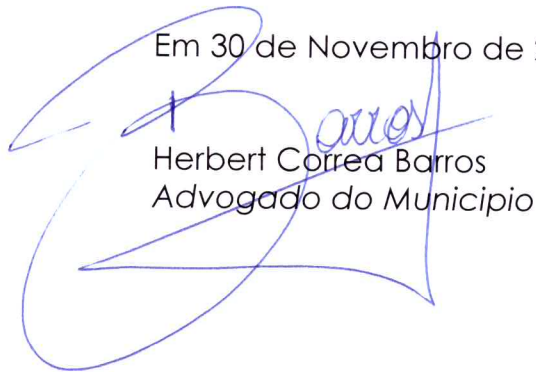 Em 30 de Novembro de
Barros
Herbert Correa Barros
Advogado do Municipio